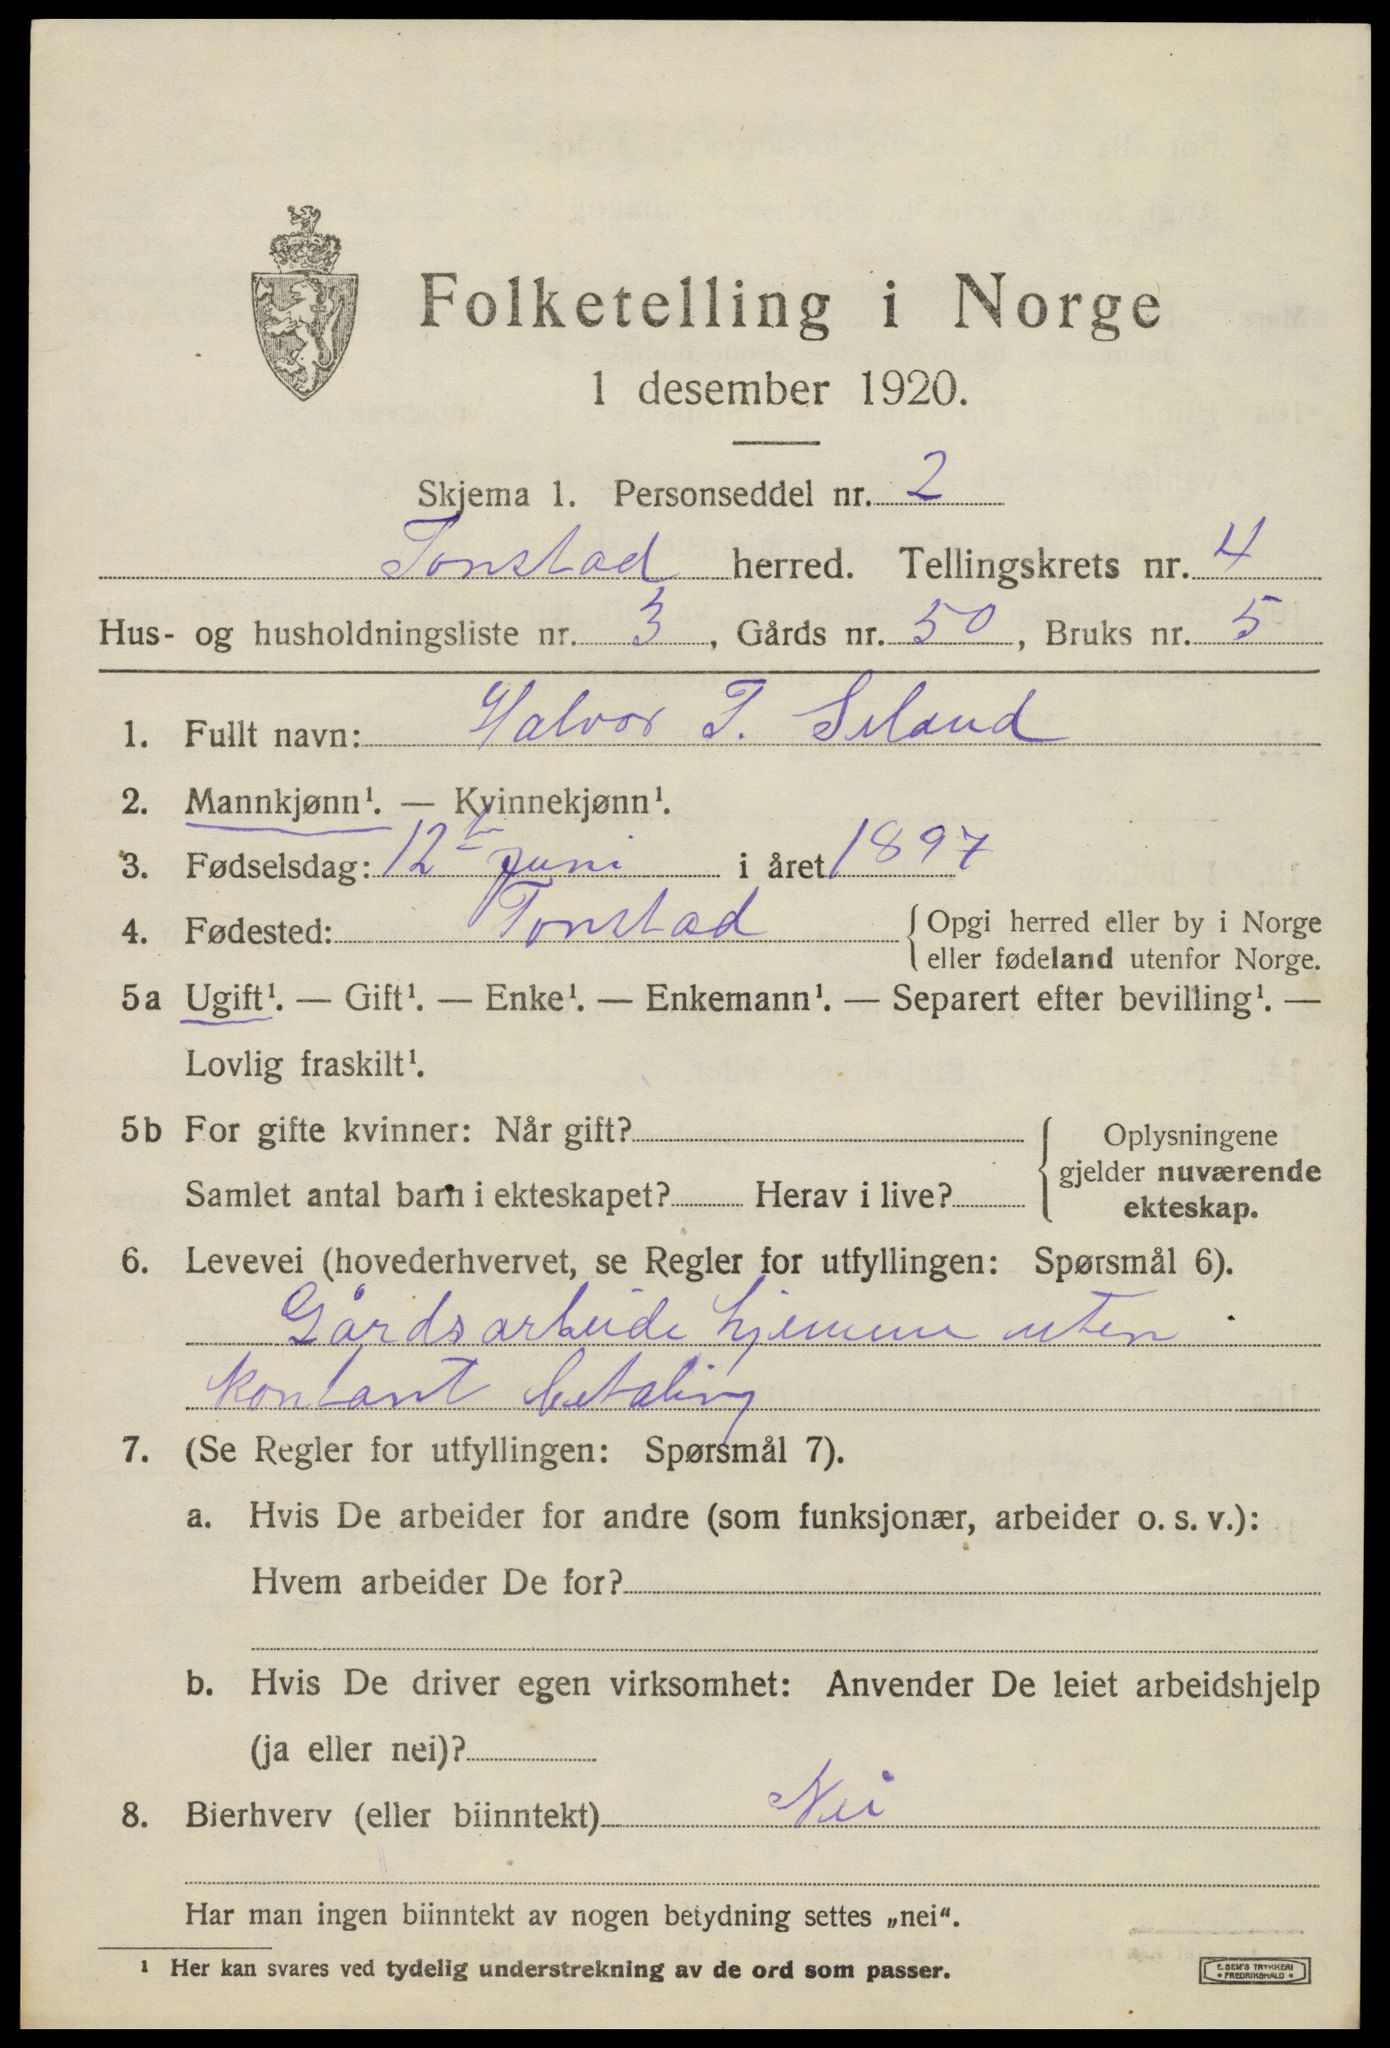 Folketelling i Norge
1 desember 1920.
Skjema 1. Personseddel nr. 2
Tonstad herred. Tellingskrets nr. 4
Hus- og husholdningsliste nr. 3, Gårds nr. 50, Bruks nr. 5
1. Fullt navn: Halvor T. Seland
2. Mannkjønn¹. — Kvinnekjønn¹.
3. Fødselsdag: 12te juni i året 1897
4. Fødested: Tonstad { Opgi herred eller by i Norge
eller fødeland utenfor Norge.
5a Ugift¹. — Gift¹. — Enke¹. — Enkemann¹. — Separert efter bevilling¹. —
Lovlig fraskilt¹.
5b For gifte kvinner: Når gift? { Oplysningene
gjelder nuværende
Samlet antal barn i ekteskapet? Herav i live?
ekteskap.
6. Levevei (hovederhvervet, se Regler for utfyllingen: Spørsmål 6).
Gårdsarbeide hjemme uten
kontant betaling
7. (Se Regler for utfyllingen: Spørsmål 7).
a. Hvis De arbeider for andre (som funksjonær, arbeider o. s. v.):
Hvem arbeider De for?
b. Hvis De driver egen virksomhet: Anvender De leiet arbeidshjelp
(ja eller nei)?
8. Bierhverv (eller biinntekt) Nei
Har man ingen biinntekt av nogen betydning settes „nei“.
¹ Her kan svares ved tydelig understrekning av de ord som passer.
E. SEM'S TRYKKERI
• FREDRIKSHALD •